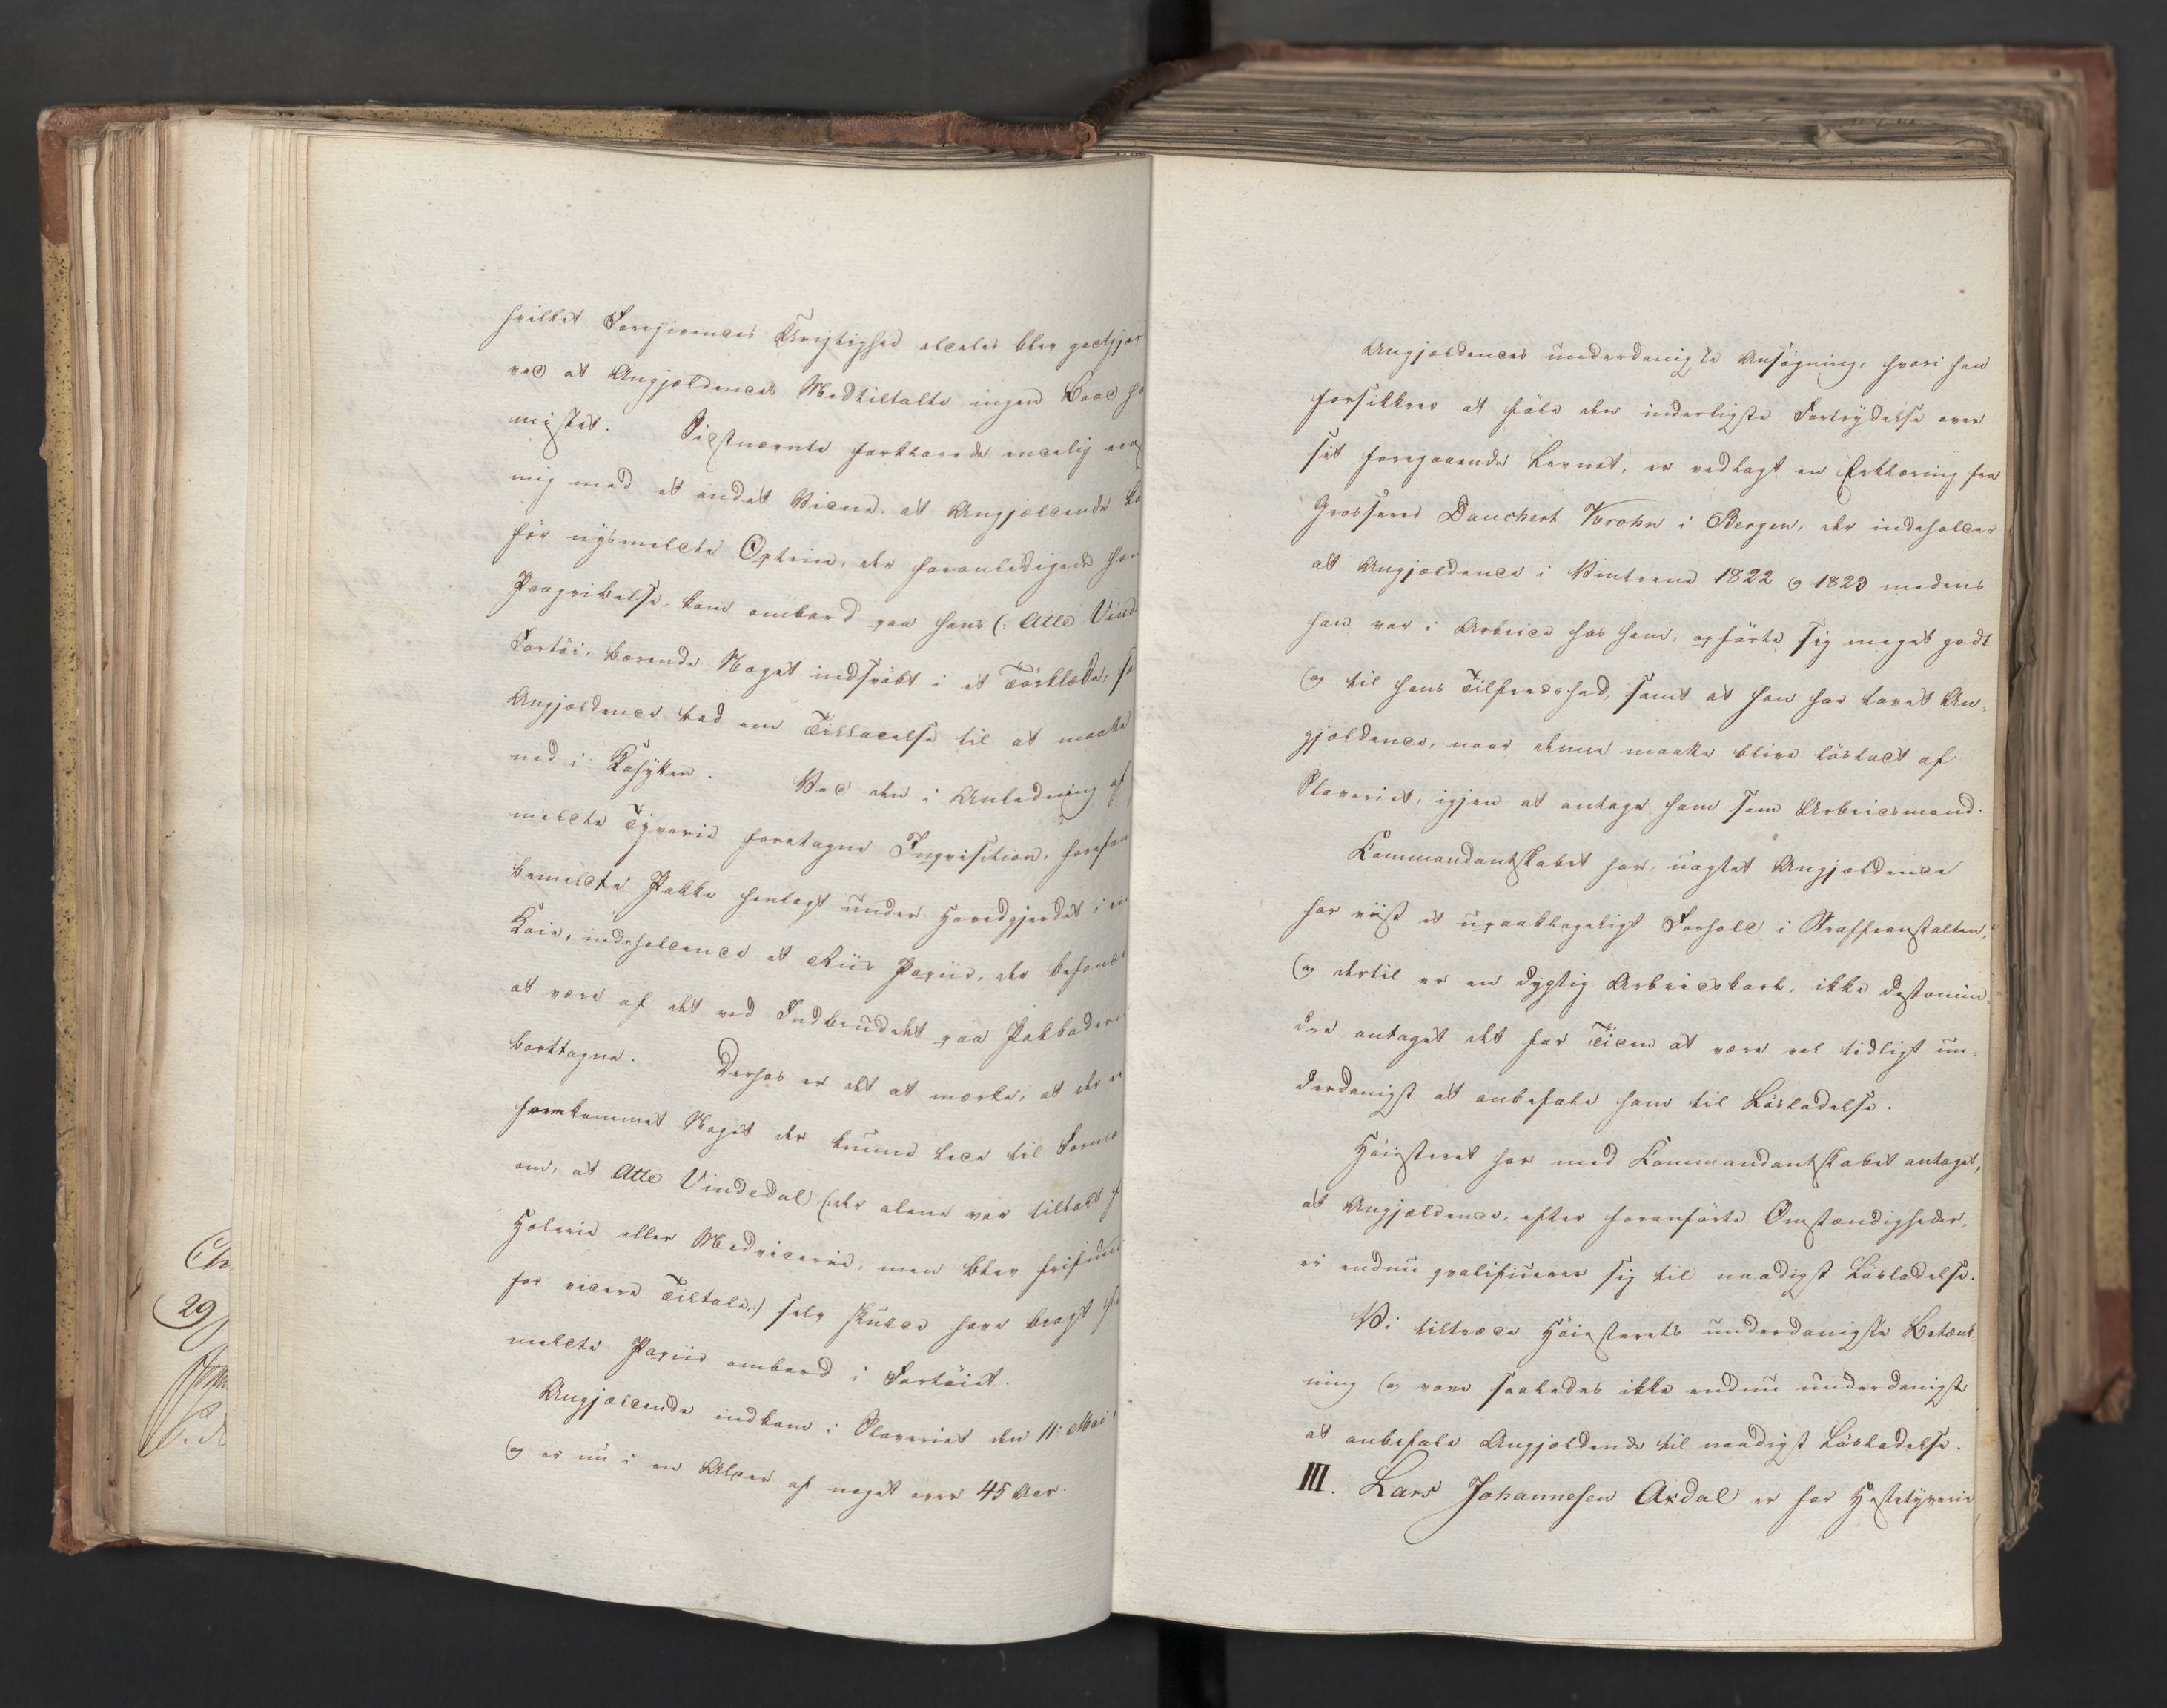 hvilket Foregivendes Urigtighed aldeles blev godtgjor
ved at Angjældendes Medtiltalte ingen Baad ha
mistet. Sidstnævnte forklarede endelig eens
mig med et andet Vidne, at Angjældende ko
før nysmeldte Optrin, der foranledigede han
Paagribelse, kom ombord paa hans (: Atle Vind
Fartøi, bærende Noget indsvøbt i et Tørklæde, so
Angjældende bad om Tilladelse til at maatte
ned i Kahytten. Ved den i Anledning af
meldte Tyverie foretagne Inqvisition, forefan
bemeldte Pakke henlagt under Hovedgjerdet i en
Koie, indeholdende et Riis Papiir, der befandt
at være af det ved Indbruddet paa Pakboden
borttagne. Derhos er det at mærke, at der ei
fremkommet Noget der kunne lede til Forme
om, at Atle Vindedal (:der alene var tiltalt f
Hæleri eller Medviderie, men blev frifund
for videre Tiltale:) selv skulde have bragt f
meldte Papiir ombord i Fartøiet.
Angjældende indkom i Slaveriet den 11te Mai
og er nu i en Alder af noget over 45 Aar.
Ch
29
Angjældendes underdanigste Ansøgning, hvori han
forsikkrer at føle den inderligste Fortrydelse over
sit foregaaende Levnet, er vedlagt en Erklæring fra
Grosserer Danchert Krohn i Bergen, der indeholder
at Angjældende i Vintrene 1822 og 1823 medens
han var i Arbeide hos ham, opførte sig meget godt
og til hans Tilfredshed, samt at han har lovet An-
gjældende, naar denne maatte blive løsladt af
Slaveriet, igjen at antage ham som Arbeidsmand.
Kommandantskabet har, uagtet Angjældende
har viist et upaaklageligt Forhold i Straffeanstalten,
og dertil er en dygtig Arbeidskarl, ikke destomin-
dre antaget det for Tiden at være vel tidligt un-
derdanigst at anbefale ham til Løsladelse.
Høiesteret har med Kommandantskabet antaget,
at Angjældende, efter foranførte Omstændigheder,
ei endnu qvalificerer sig til naadigst Løsladelse.
Vi tiltræde Høiesterets underdanigste Betænk-
ning og vove saaledes ikke endnu underdanigst
at anbefale Angjældende til naadigst Løsladelse.
III. Lars Johannesen Axdal er for Hestetyverie